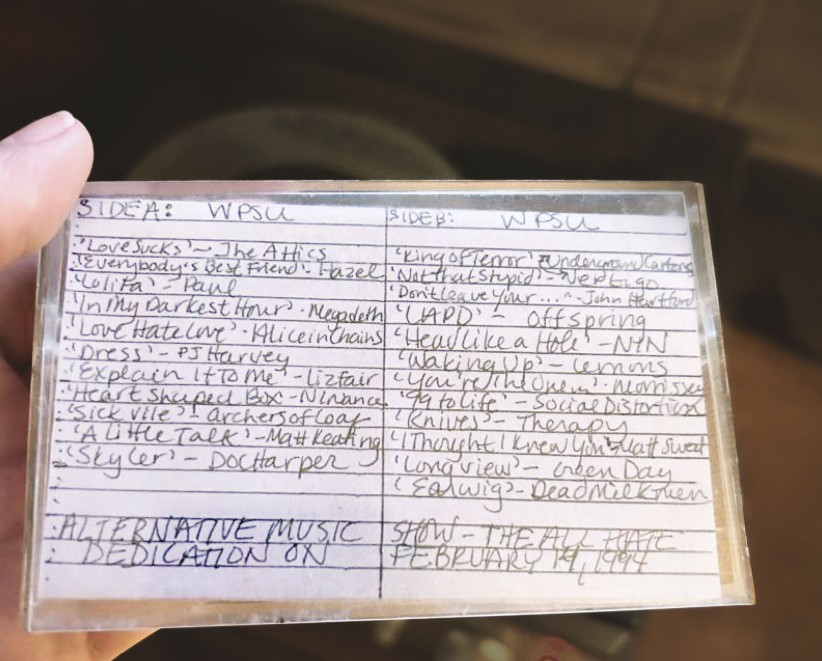 SIDE A: WPSU
'Love Sucks' ~ The Attics
'Everybody's Best Friend'- Hazel
'Lolita' - Paul
'In My Darkest Hour'- Megadeth
'Love Hate Love' - Alice in Chains
'Dress' - PJ Harvey
'Explain It To Me' - Liz Fair
'Heart Shaped Box - Nirvana
'Sick Vile' - Archers of Loaf
'A Little Talk' - Matt Keating
'Skyler' - Doc Harper
SIDE B: WPSU
'King of Terror' Underground Cartoons
'Not that Stupid' - Vertigo
'Don't Leave Your ..." - John Hartford
'LAPD' - Offspring
'Head Like a Hole' - NIN
'Waking Up' - Lemons
'You're the One...' - Morrissey
'99 to Life' - Social Distortion
'Knives' - Therapy
'I Thought I Knew You' Matt Sweet
'Longview' - Green Day
'Earwig' - Dead Milkmen
ALTERNATIVE MUSIC SHOW - THE ALL HATE
DEDICATION ON FEBRUARY 14, 1994